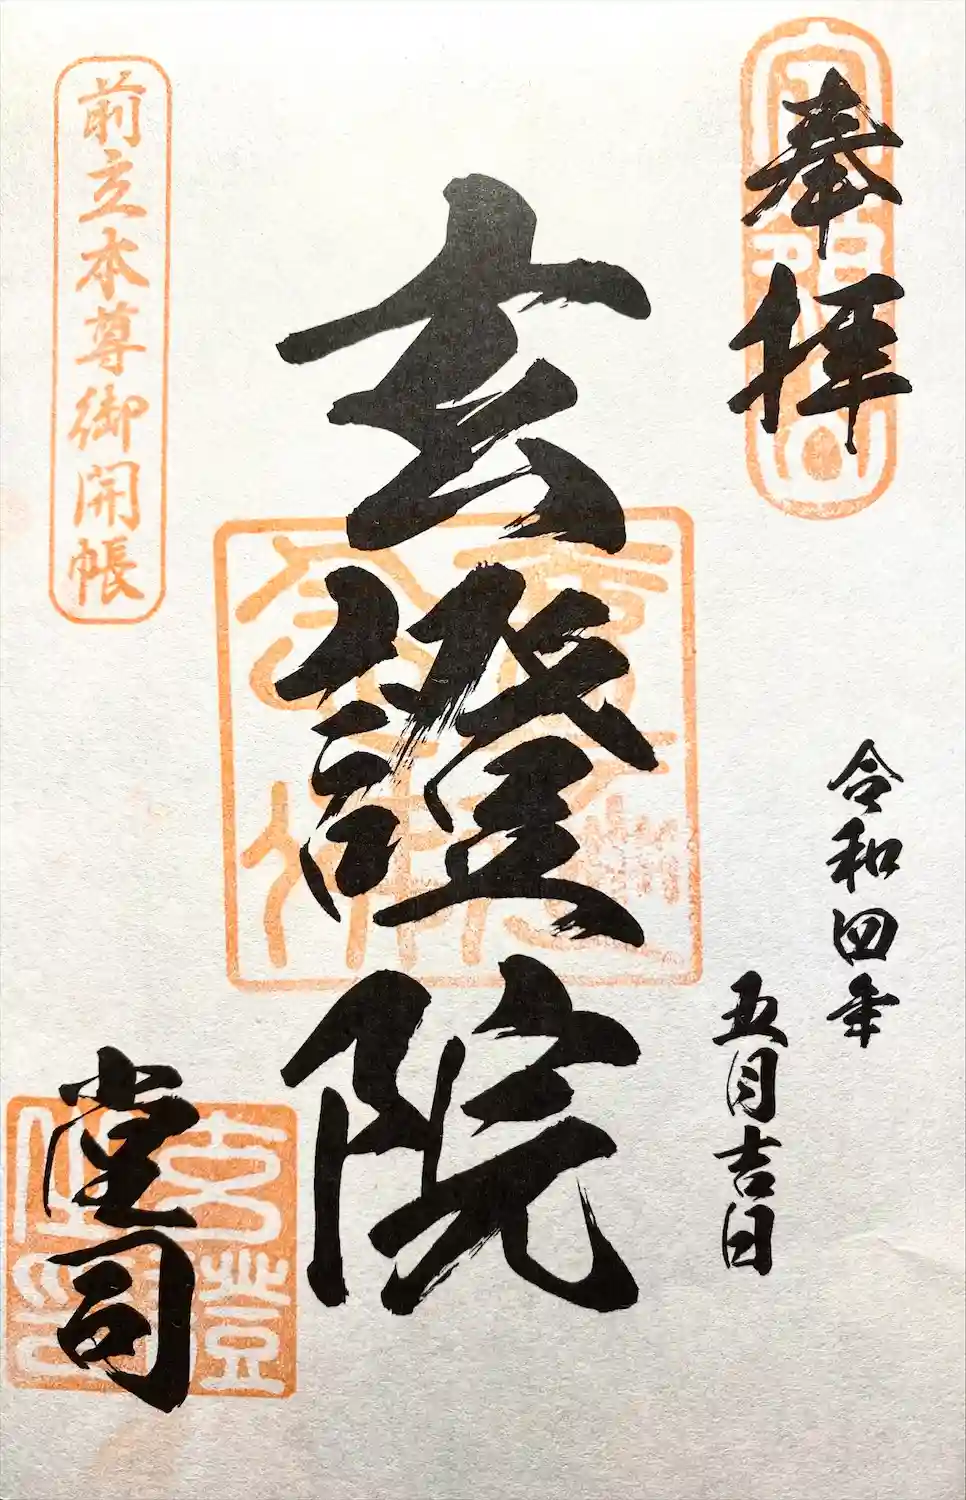 奉拝
令和四年
五月吉日
玄證院
前立本尊御開帳
堂司